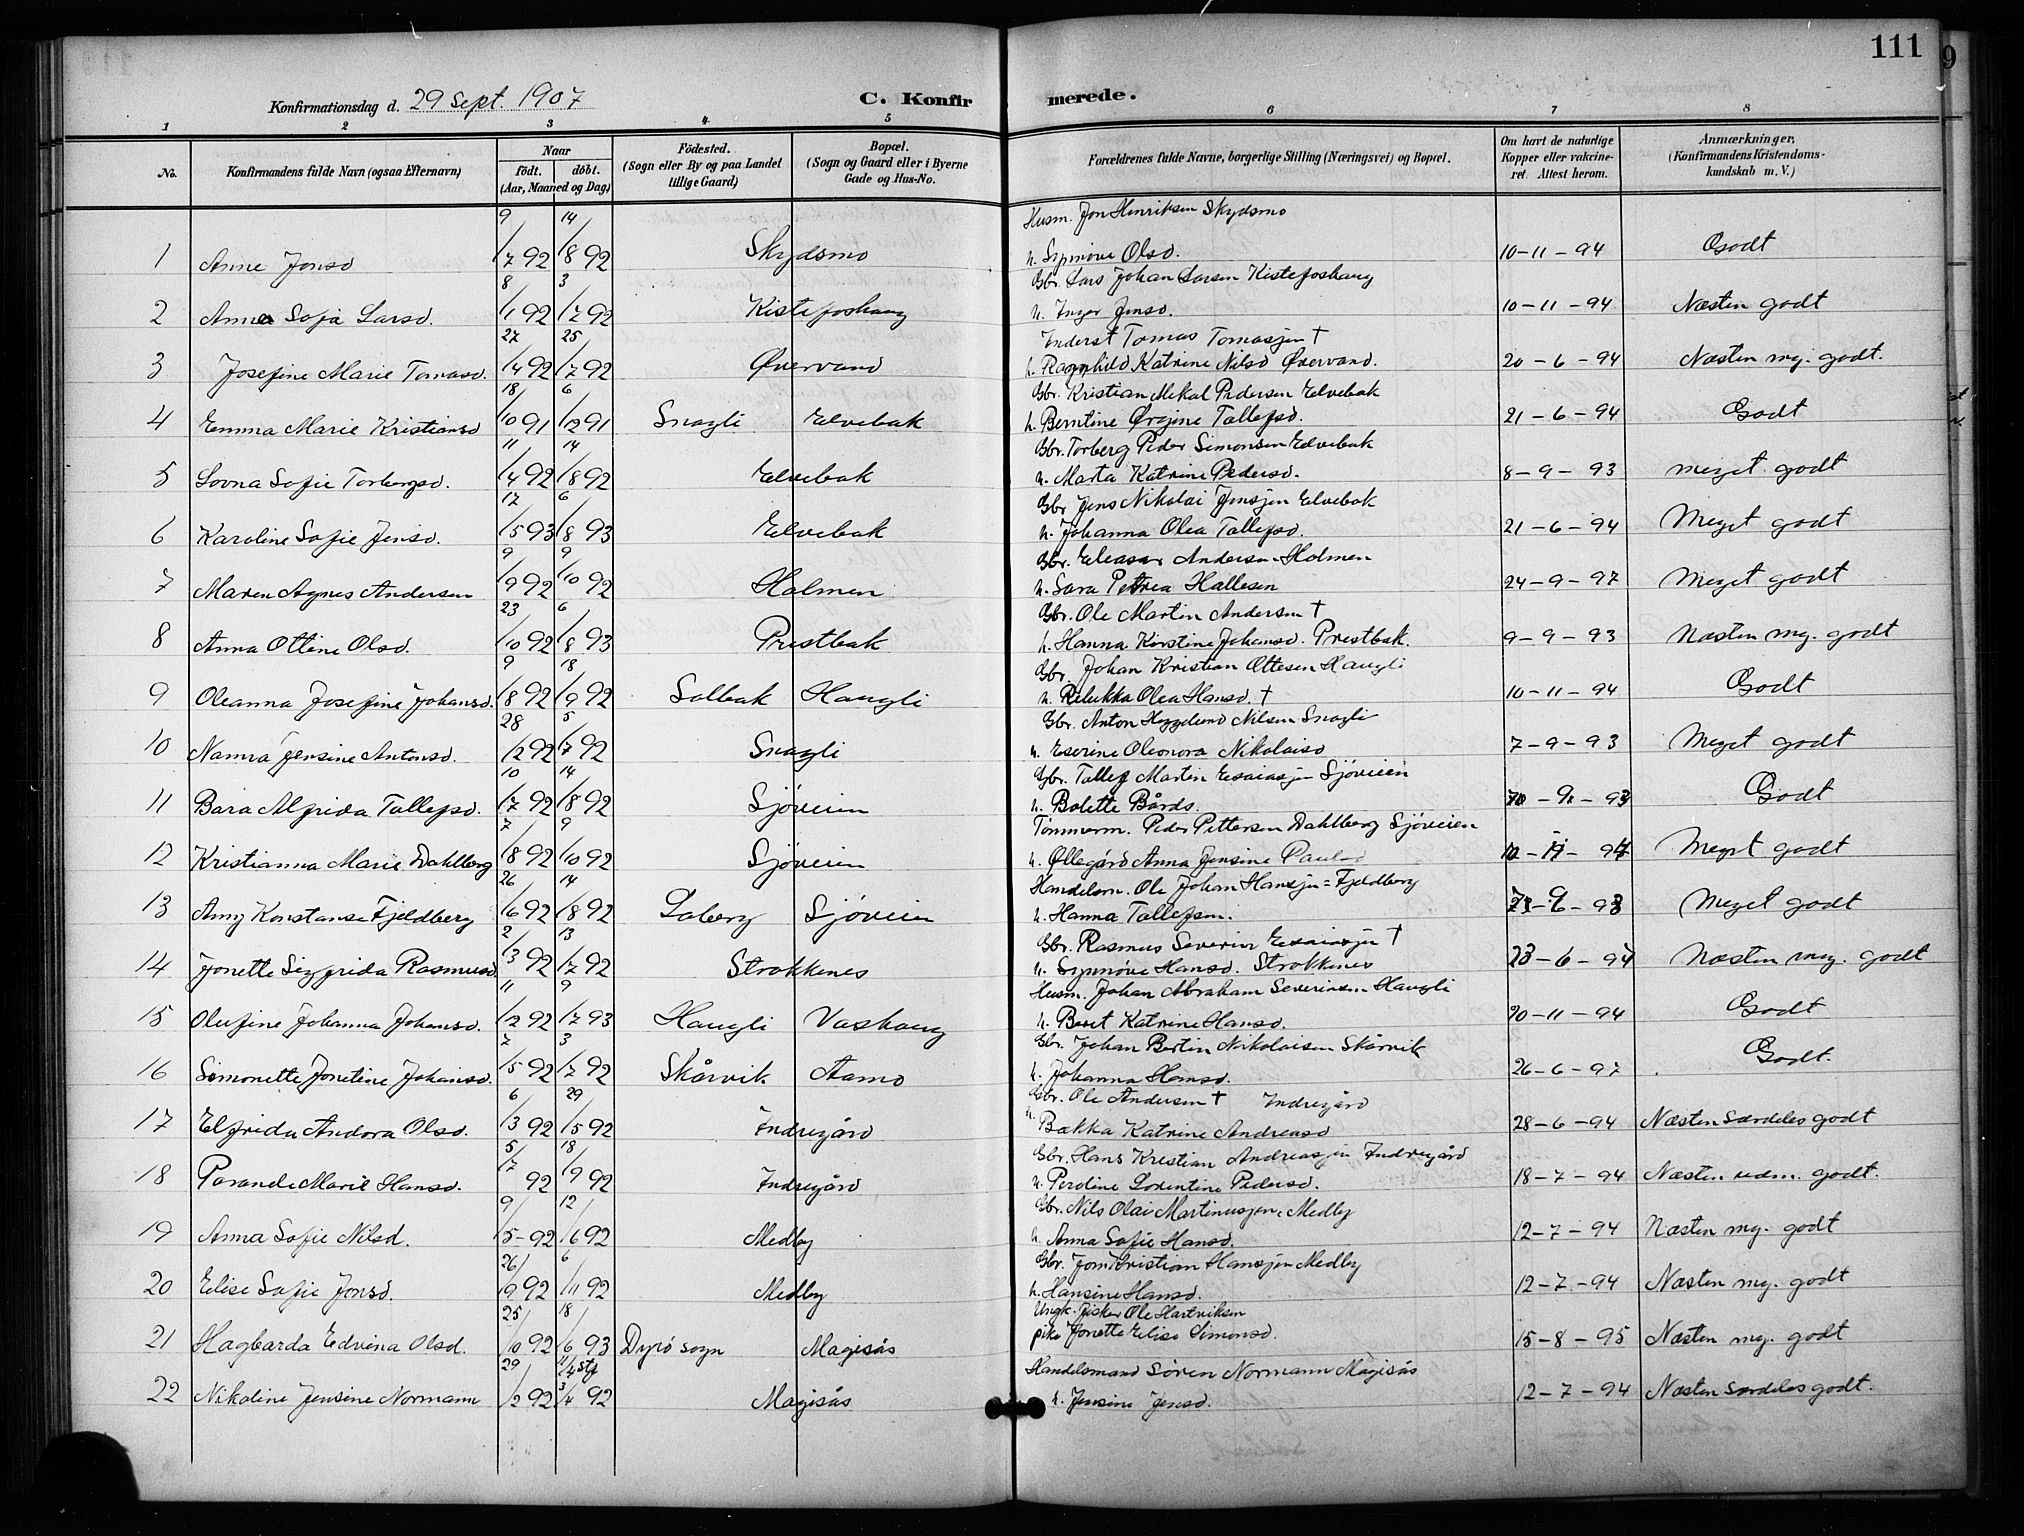 111
Konfirmationsdag d. 29 Sept. 1907
C. Konfirmerede.
1 2 3 4 5 6 7 8
No. Konfirmandens fulde Navn (ogsaa Efternavn) Naar født. døbt. (Aar, Maaned og Dag) Fødested. (Sogn eller By og paa Landet lillige Gaard) Bopæl. (Sogn og Gaard eller i Byerne Gade og Hus-No. Forældrenes fulde Navne, borgerlige Stilling (Næringsvei) og Bopæl. Om havt de naturlige Kopper eller vakcineret. Attest herom. Anmærkninger. (Konfirmandens Kristendomskundskab m. V.)
Husm. Jon Henriksen Skydsmo
1 Anne Jonsd 9/7 92 14/8 92 Skydsmo h. Synnøve Olsd. 10-11-94 Godt
Gbr. Lars Johan Larsen Kistefoshaug
2 Anna Sofia Larsd. 8/1 92 3/7 92 Kistefoshaug h. Inger Jensd. 10-11-94 Næsten godt
Inderst Tomas Tomasjen †
3 Josefine Marie Tomasd. 27/4 92 25/7 92 Øvervand h. Ragnhild Katrine Nilsd Øvervand. 20-6-94 Næsten mg. godt.
Gbr. Kristian Mikal Pedersen Elvebak
4 Emma Marie Kristiansd 18/10 91 6/12 91 Snogli Elvebak h. Berntine Ørgine Tallefsd. 21-6-94 Godt
Gbr. Torberg Peder Simonsen Elvebak
5 Lovna Sofie Torbergsd. 11/4 92 14/8 92 Elvebak h. Marta Katrine Pedersd. 8-9-93 meget godt
Gbr Jens Nikolai Jensjen Elvebak
6 Karoline Sofie Jensd. 17/5 93 6/8 93 Elvebak h. Johanna Olea Tallefsd. 21-6-94 Meget godt
Gbr. Eleasar Andersen Holmen
7 Maren Agnes Andersen 9/9 92 9/10 92 Holmen h. Sara Petrea Hallesen 24-9-97 Meget godt
Gbr. Ole Martin Andersen †
8 Anna Ottine Olsd. 23/10 92 6/8 93 Prestbak h. Hanna Kirstine Johansd. Prestbak. 9-9-93 Næsten mg. godt
Gbr. Johan Kristian Ottesen Haugli
9 Oleanna Josefine Johansd. 9/8 92 18/9 92 Solbak Haugli h. Rebekka Olea Hansd. † 10-11-94 Godt
Gbr. Anton Heggelund Nilsen Snogli
10 Nanna Jensine Antonsd. 28/2 92 5/7 92 Snogli h. Eserine Oleonora Nikolaisd 7-9-93 Meget godt
Gbr. Tallef Martin Esaiasjen Sjöveien
11 Bara Alfrida Tallefsd. 10/7 92 14/8 92 Sjöveien h. Bolette Bårds. Godt
Tömmerm. Peder Pettersen Dahlberg Sjöveien
12 Kristianna Marie Dahlberg 7/8 92 9/10 92 Sjöveien h. Øllegård Anna Jensine Paulsd Meget godt
Handelsm. Ole Johan Hansjen = Fjeldberg
13 Amy Konstanse Fjeldberg 26/6 92 14/8 92 Soberg Sjöveien h. Hanna Tallefsen. Meget godt
Gbr. Rasmus Severin Esaiasjen †
14 Jonette Sigfrida Rasmusd 2/3 92 13/7 92 Strokkenes h. Synnöve Hansd. Strokkenes 23-6-94 Næsten meg. godt
Husm. Johan Abraham Severinsen Haugli
15 Olufine Johanna Johansd. 11/12 92 9/7 93 Haugli Vashaug h. Beret Katrine Hansd. 20-11-94 Godt
Gbr. Johan Bertin Nikolaisen Skårvik
16 Simonette Jonetine Johansd. 7/5 92 3/7 92 Skårvik Aamo h. Johanna Hansd. 26-6-97 Godt.
Gbr. Ole Andersen † Indregård
17 Elfrida Andora Olsd. 6/3 92 29/5 92 Indregård h. Bækka Katrine Andreasd 28-6-94 Næsten særdeles godt
Gbr. Hans Kristian Andreasjen Indregård
18 Parande Marie Hansd. 5/7 92 18/9 92 Indregård h. Perdine Lorentine Pedersd. 18-7-94 Næsten udm. godt.
Gbr. Nils Olai Martinusjen Medby
19 Anna Sofie Nilsd. 9/5-92 12/6 92 Medby h. Anna Sofie Hansd. 12-7-94 Næsten mg. godt
Gbr. Jom Kristian Hansjen Medby
20 Elise Sofie Jonsd. 26/9 92 6/11 92 Medby h. Hansine Hansd. 12-7-94 Næsten mg. godt
Ungk. fisker Ole Hartviksen
21 Hagbarda Edvina Olsd. 25/10 92 18/6 93 Dyrö sogn Magisås pike Jonette Elise Simonsd. 15-8-95 Næsten mg. godt
Handelsmand Sören Normann Magisås
22 Nikoline Jensine Normann 29/2 92 3/4 92 Magisås h. Jensine Jensd. 12-7-94 Næsten særdeles godt.